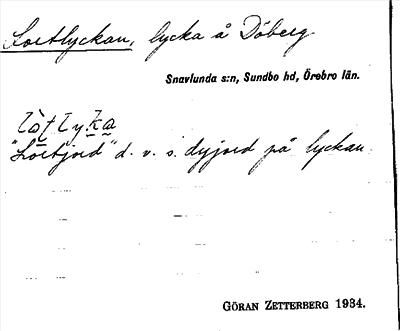 Lortlyckan, lycka å Döberg.
Snavlunda s:n, Sundbo hd, Örebro län.
"Lortjord" d. v. s. dyjord på lyckan.
GÖRAN ZETTERBERG 1934.